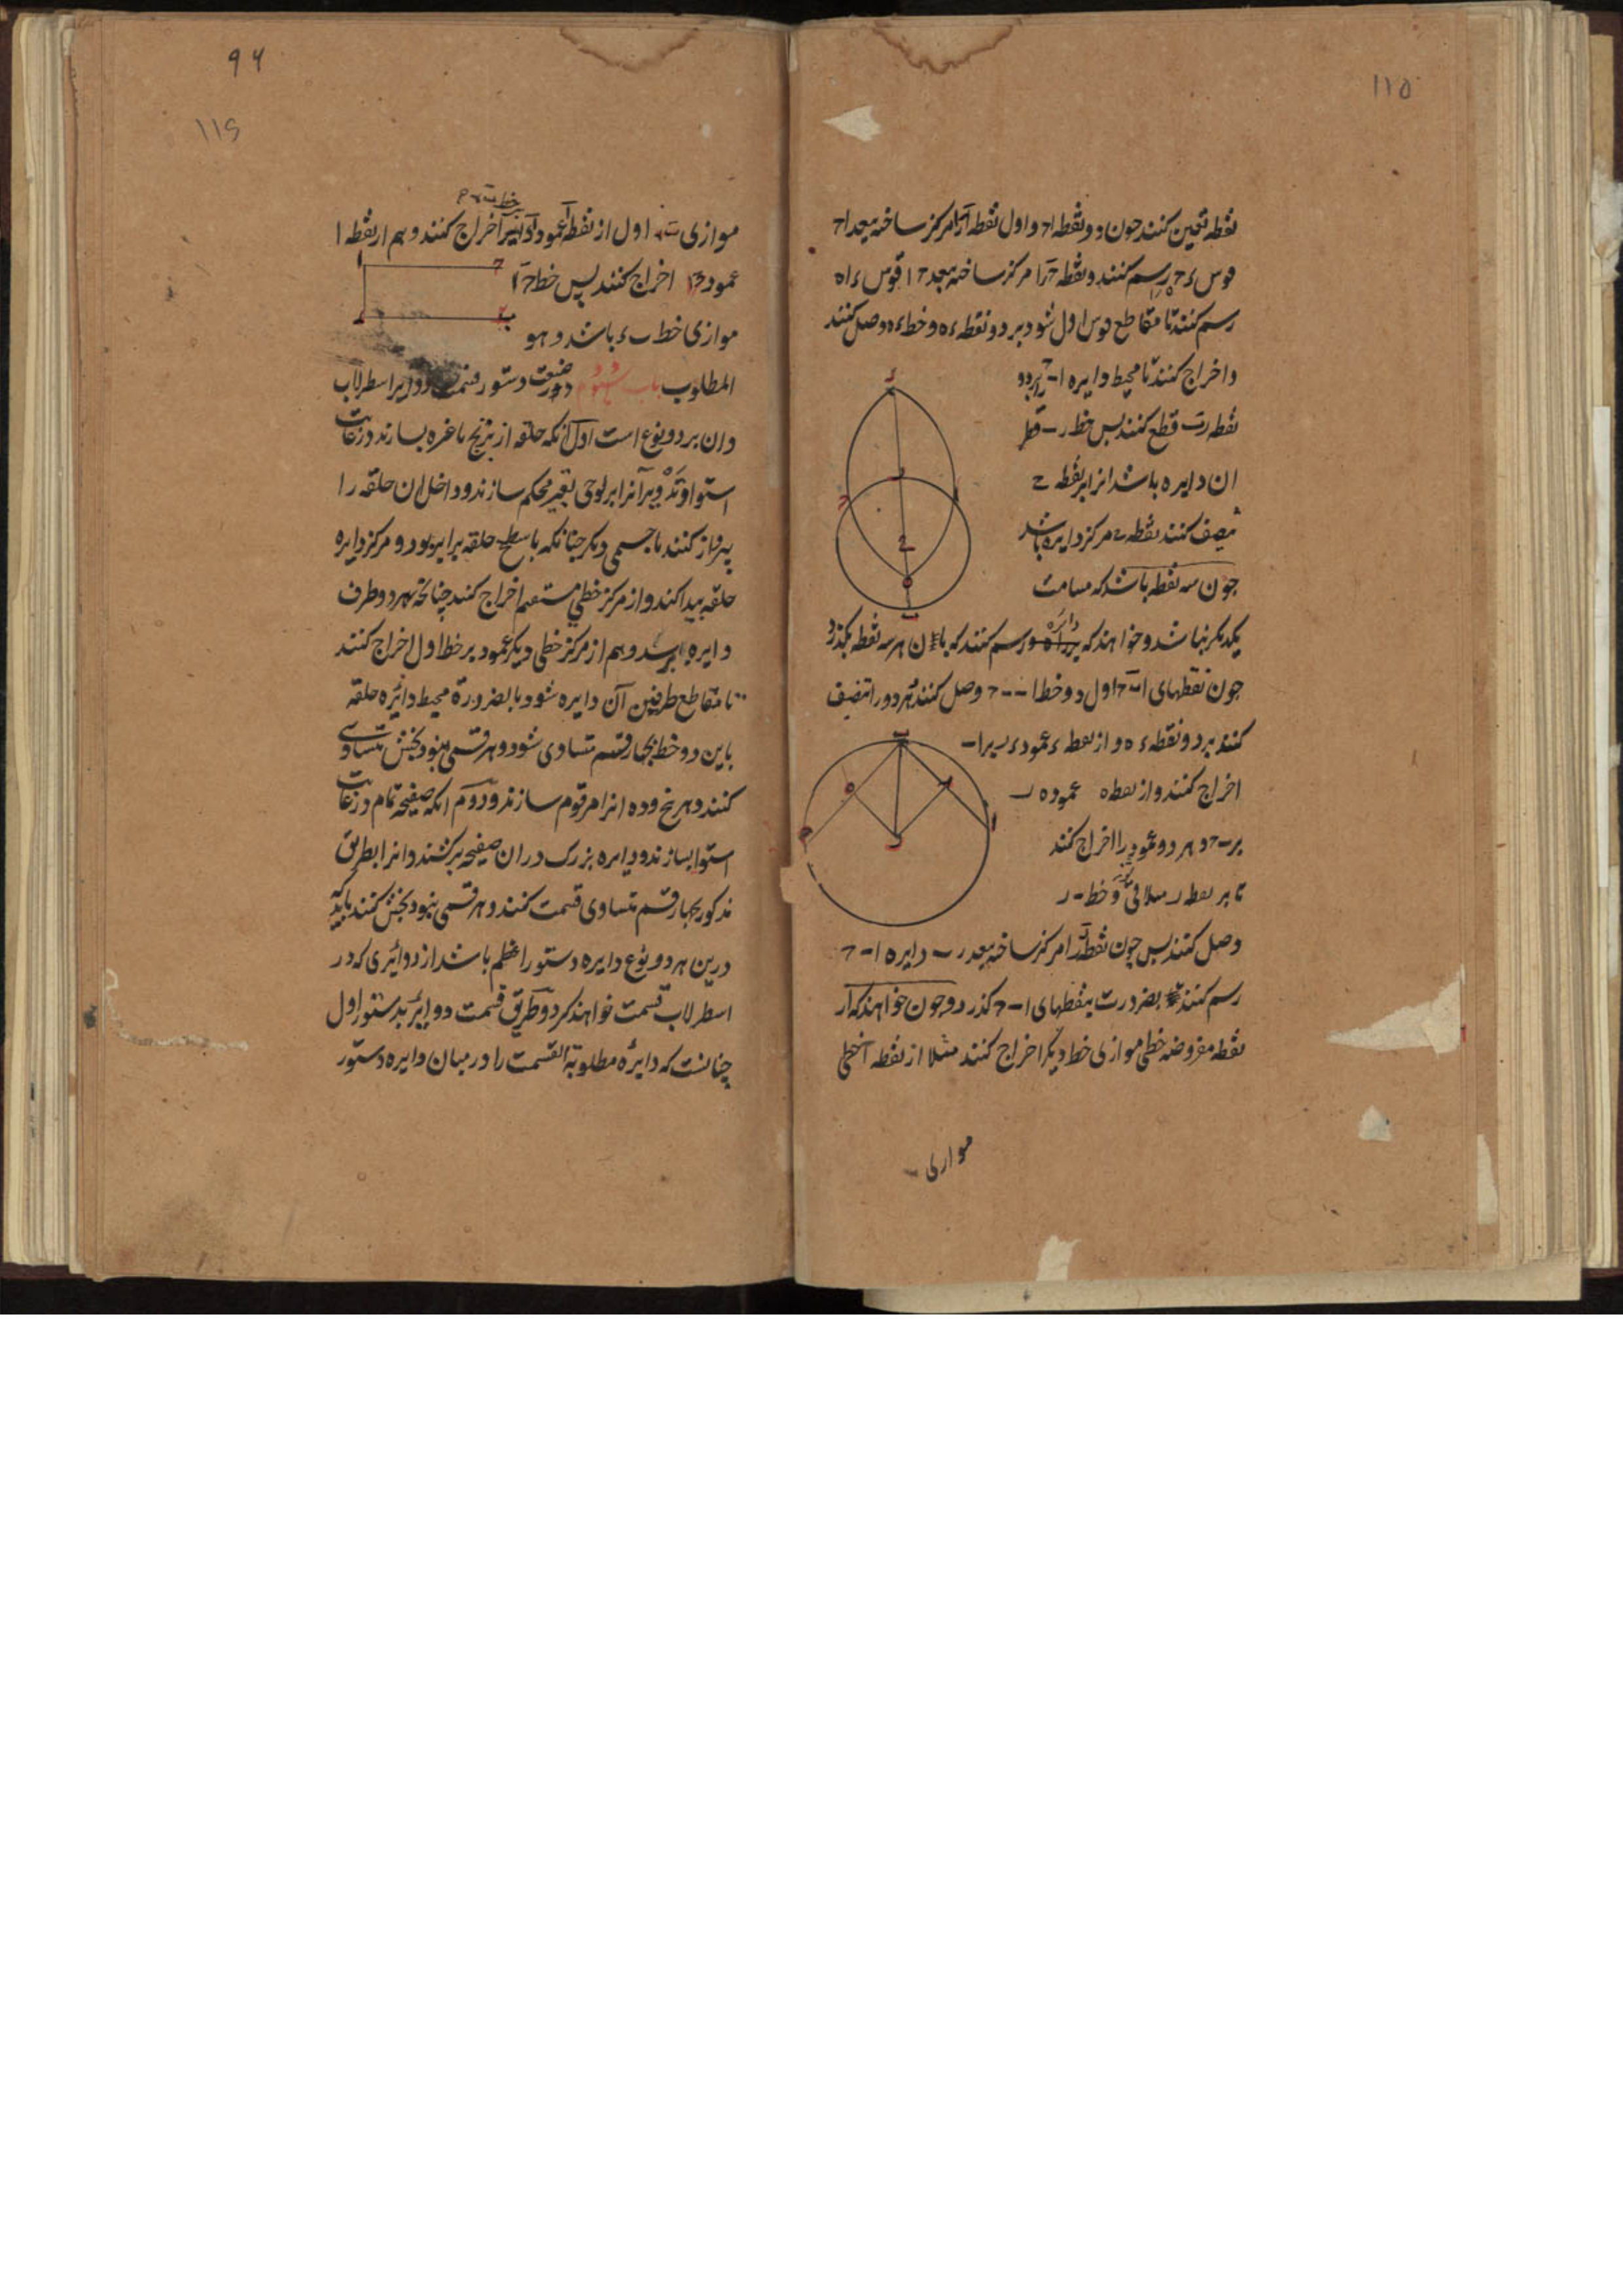 ۱۱۵
نقطه تعین کنند چون دو نقطه ا ح و اول نقطه آ را مرکز ساخته ببعد ا ح
قوس ء ح ه رسم کنند و نقطه ح را مرکز ساخته ببعد ح ا قوس ء ا ه
رسم کنند تا مقاطع قوس اول شود بر دو نقطه ء ه و خط ء ه وصل کنند
و اخراج کنند تا محیط دایره ا ب ح را بر دو
نقطه ر ب قطع کنند پس خط ر ب قطر
ان دایره باشد انرا بر نقطه ح
تنصیف کنند نقطه ح مرکز دایره باشد
چون سه نقطه باشد که مسامت
یکدیکر نباشد و خواهند که دایره رسم کنند که بان هر سه نقطه بکذرد
چون نقطهای ا ب ح اول دو خط ا ب ب ح وصل کنند هر دو را تنصیف
کنند بر دو نقطه ء ه و از نقطه ء عمود ء ر بر ا ب
اخراج کنند و از نقطه ه عمود ه ر
بر ب ح و هر دو عمود را اخراج کنند
تا بر نقطه ر ملاقی شوند و خط ب ر
وصل کنند پس چون نقطه ر را مرکز ساخته ببعد ر ب دایره ا ب ح
رسم کنند بضرورت بنقطهای ا ب ح کذرد و چون خواهند که از
نقطه مفروضه خطی موازی خط دیکر اخراج کنند مثلا از نقطه آ خطی
موازی ب
۹۶
۱۱۶
خط ب ء
موازی ب ء اول از نقطه آ عمود بر اخراج کنند و هم از نقطه ا
عمود ا ح اخراج کنند پس خط ح آ
موازی خط ب ء باشد و هو
المطلوب باب در صنعت دستور قسمت دوایر اسطرلاب
و ان بر دو نوع است اول آنکه حلقه از برنج یا غیره بسازند در غایت
استوا و تدویر آنرا بر لوحی بقیر محکم سازند و داخل ان حلقه را
پر از کنند با جسمی دیکر چنانکه با سطح حلقه برابر بود و مرکز دایره
حلقه پیدا کنند و از مرکز خطی مستقیم اخراج کنند چنانچه بهر دو طرف
دایره برسد و هم از مرکز خطی دیکر عمود بر خط اول اخراج کنند
تا مقاطع طرفین آن دایره شود بالضرورة محیط دائره حلقه
باین دو خط بچهار قسم متساوی شود و هر قسمی بنود بخش متساوی
کنند و هر پنج و ده انرا مرقوم سازند و دوم انکه صفیحه تمام در غایت
استوا بسازند و دایره بزرک در ان صفیحه برکشند و انرا بطریق
مذکور بچهار قسم متساوی قسمت کنند و هر قسمی بنود بخش کنند باید که
درین هر دو نوع دایره دستور اعظم باشد از دوائری که در
اسطرلاب قسمت خواهند کرد و طریق قسمت دوایر بدستور اول
چنانست که دایره مطلوبة القسمت را در میان دایره دستور